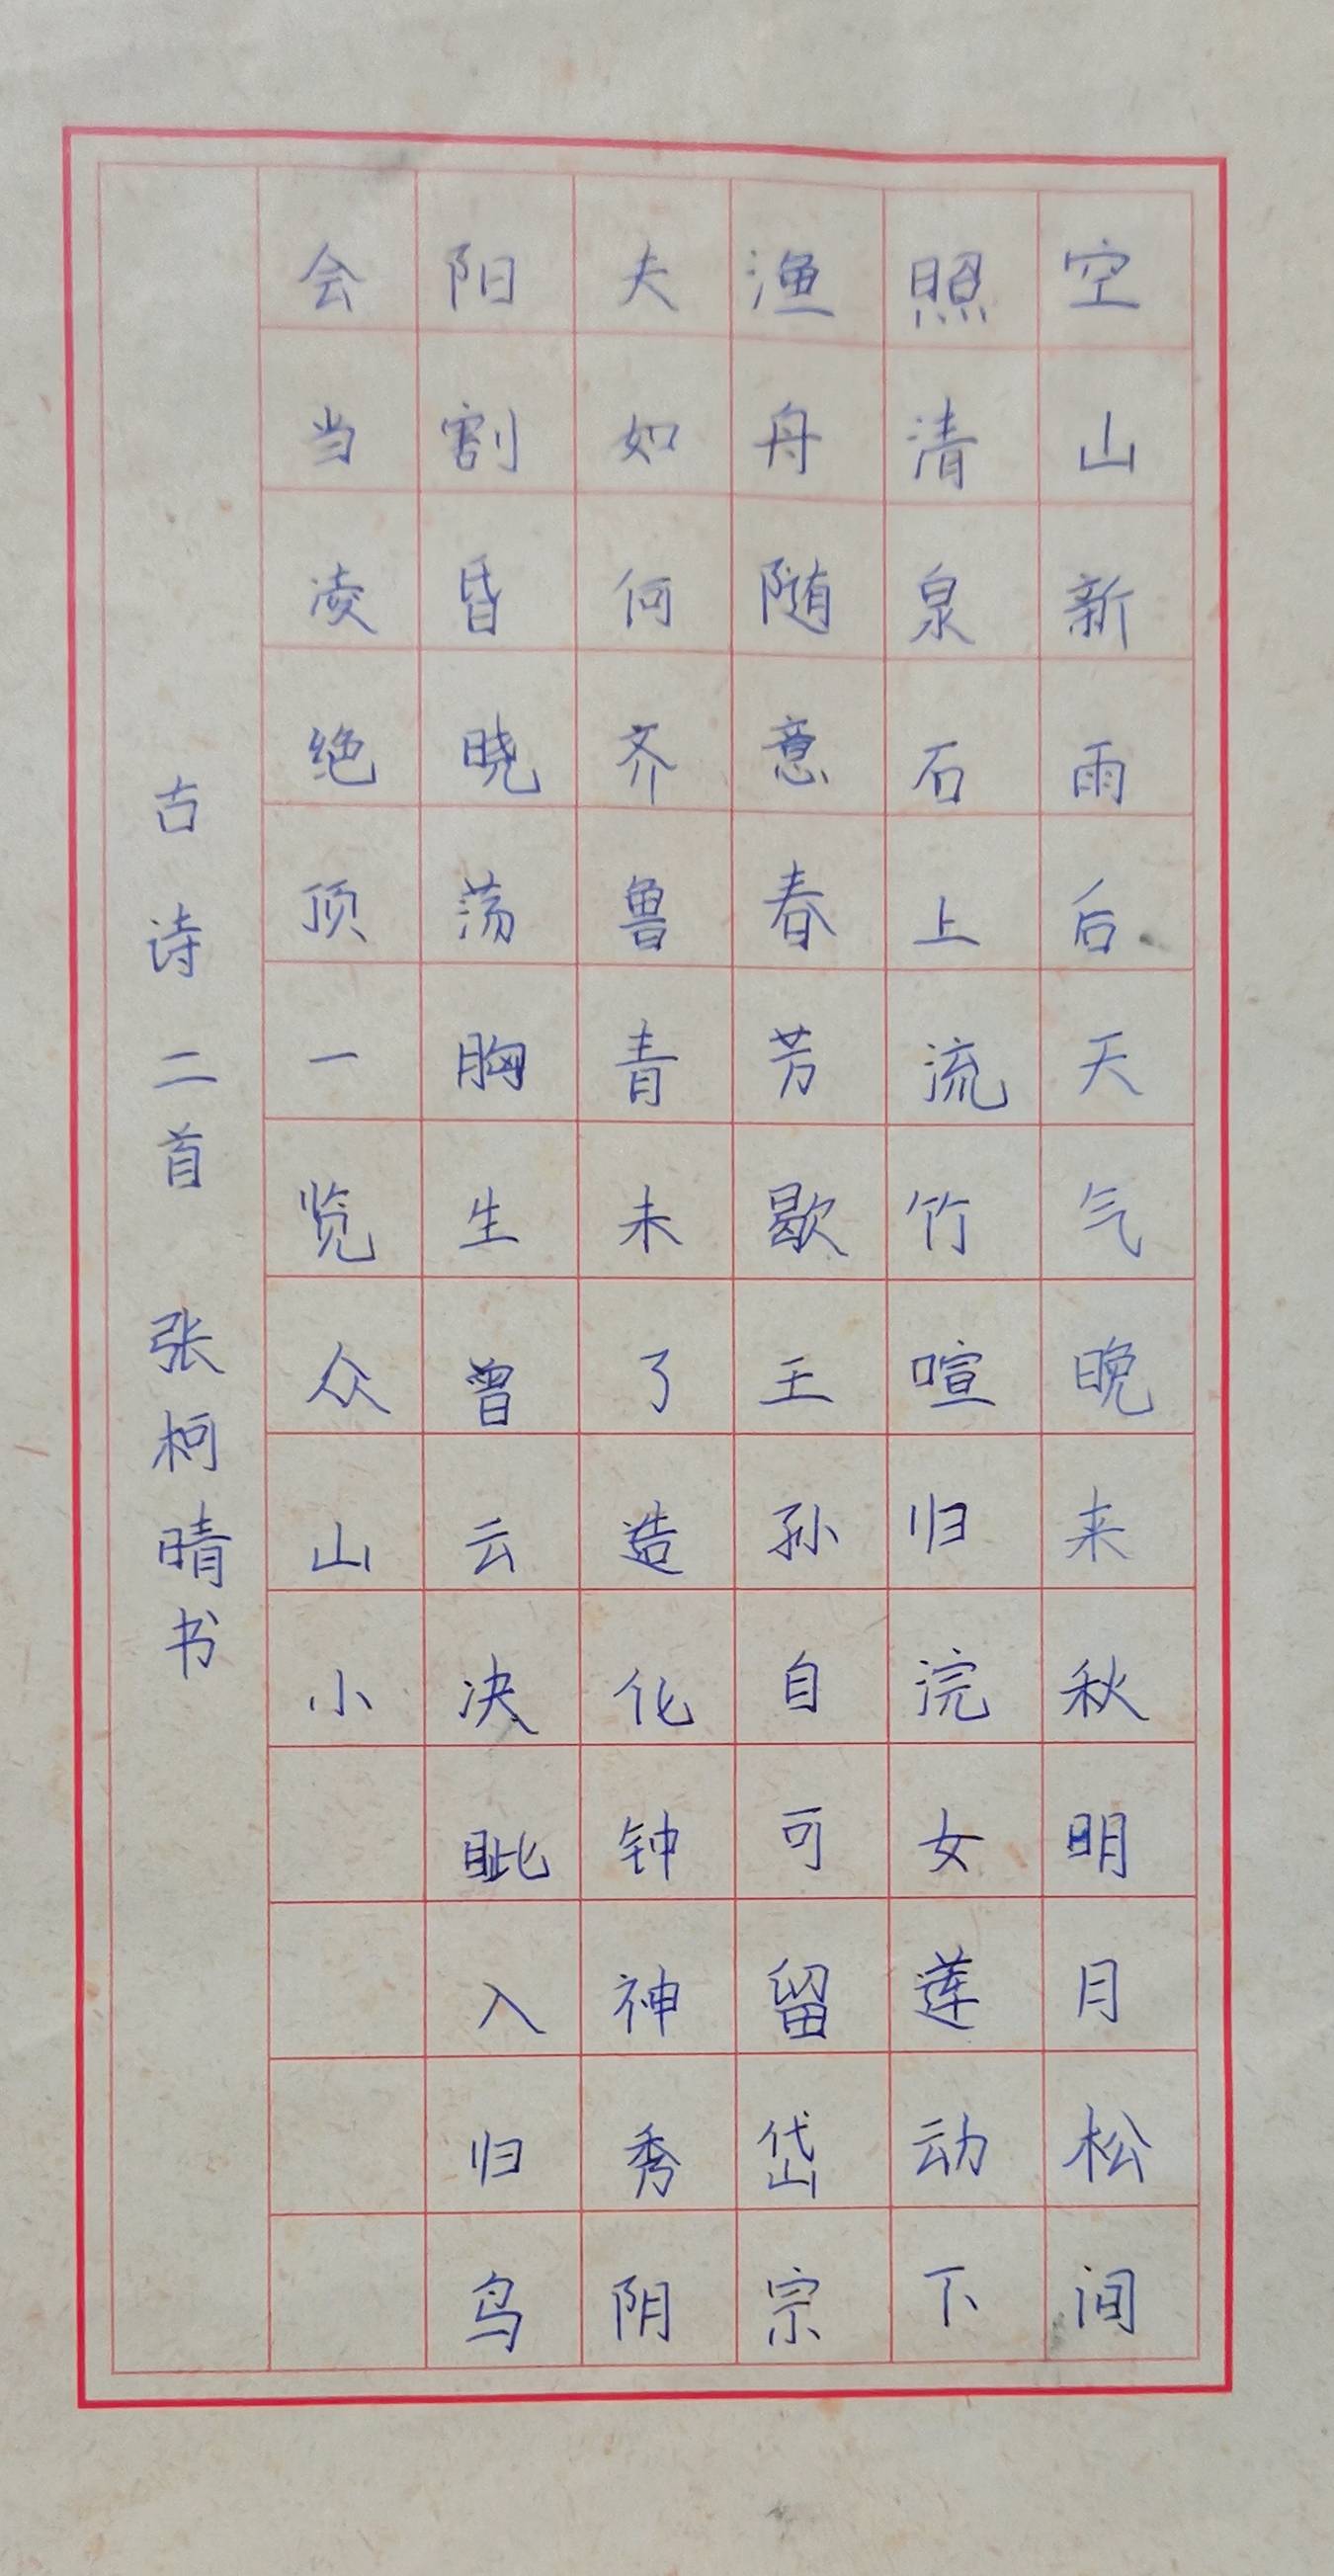 空山新雨后天气晚来秋明月松间
照清泉石上流竹喧归浣女莲动下
渔舟随意春芳歇王孙自可留岱宗
夫如何齐鲁青未了造化钟神秀阴
阳割昏晓荡胸生曾云决眦入归鸟
会当凌绝顶一览众山小
古诗二首 张柯晴书